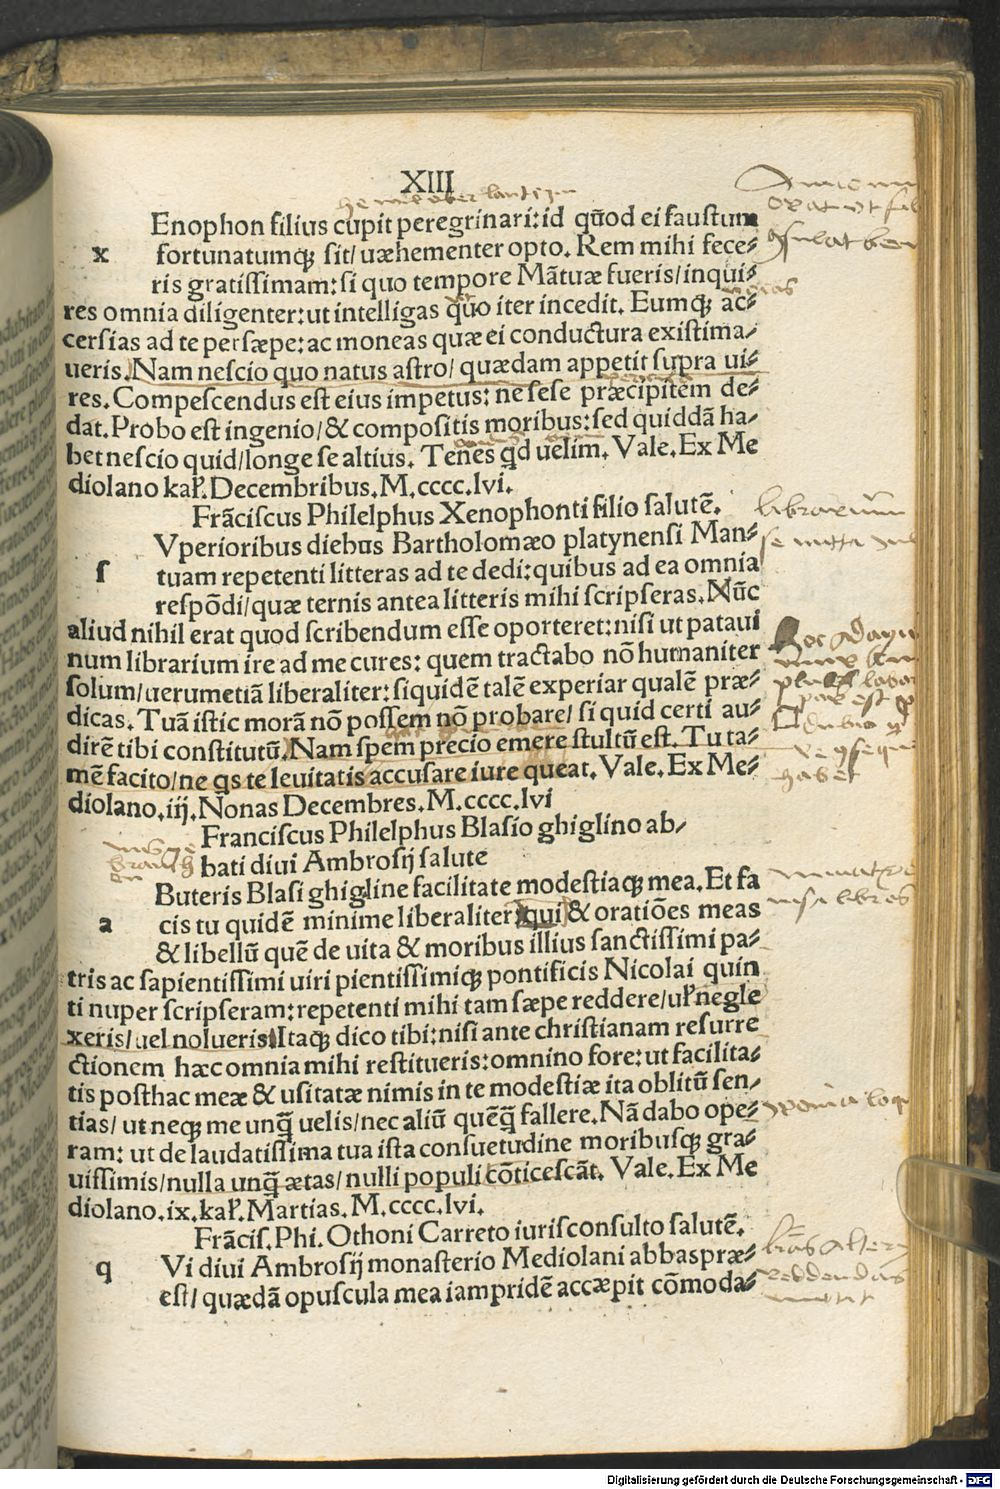 XIII
Enophon filius cupit peregrinari: id quod ei faustum
x fortunatumqꝫ sit/ uæhementer opto. Rem mihi fece⸗
ris gratissimam: si quo tempore Mātuæ fueris/ inqui⸗
res omnia diligenter: ut intelligas quo iter incedit. Eumqꝫ ac⸗
cersias ad te persæpe: ac moneas quæ ei conductura existima⸗
ueris. Nam nescio quo natus astro/ quædam appetit supra ui⸗
res. Compescendus est eius impetus: ne sese præcipitem de⸗
dat. Probo est ingenio/ & compositis moribus: sed quiddā ha⸗
bet nescio quid/ longe se altius. Tenes qd uelim. Vale. Ex Me
diolano kał. Decembribus. M.cccc.lvi.
Frāciscus Philelphus Xenophonti filio salutē.
Vperioribus diebus Bartholomæo platynensi Man⸗
s tuam repetenti litteras ad te dedi: quibus ad ea omnia
respōdi/ quæ ternis antea litteris mihi scripseras. Nūc
aliud nihil erat quod scribendum esse oporteret: nisi ut pataui
num librarium ire ad me cures: quem tractabo nō humaniter
solum/ uerumetiā liberaliter: siquidē talē experiar qualē præ⸗
dicas. Tuā istic morā nō possem nō probare/ si quid certi au⸗
dirē tibi constitutū. Nam spem precio emere stultū est. Tu ta⸗
mē facito/ ne qs te leuitatis accusare iure queat. Vale. Ex Me⸗
diolano. iij. Nonas Decembres. M.cccc.lvi
Franciscus Philelphus Blasio ghiglino ab⸗
bati diui Ambrosij salute
Buteris Blasi ghigline facilitate modestiaqꝫ mea. Et fa
a cis tu quidē minime liberaliter: qui & oratiōes meas
& libellū quē de uita & moribus illius sanctissimi pa⸗
tris ac sapientissimi uiri pientissimiqꝫ pontificis Nicolai quin
ti nuper scripseram: repetenti mihi tam sæpe reddere/ uł negle
xeris/ uel nolueris. Itaqꝫ dico tibi: nisi ante christianam resurre
ctionem hæc omnia mihi restitueris: omnino fore: ut facilita⸗
tis posthac meæ & usitatæ nimis in te modestiæ ita oblitū sen⸗
tias/ ut neqꝫ me unq̄ uelis/ nec aliū quēq̄ fallere. Nā dabo ope⸗
ram: ut de laudatissima tua ista consuetudine moribusqꝫ gra⸗
uissimis/ nulla unq̄ ætas/ nulli populi cōticescāt. Vale. Ex Me
diolano. ix. kał. Martias. M.cccc.lvi.
Frācis. Phi. Othoni Carreto iurisconsulto salutē.
q Vi diui Ambrosij monasterio Mediolani abbas præ⸗
est/ quædā opuscula mea iampridē accæpit cōmoda⸗
Digitalisierung gefördert durch die Deutsche Forschungsgemeinschaft - DFG